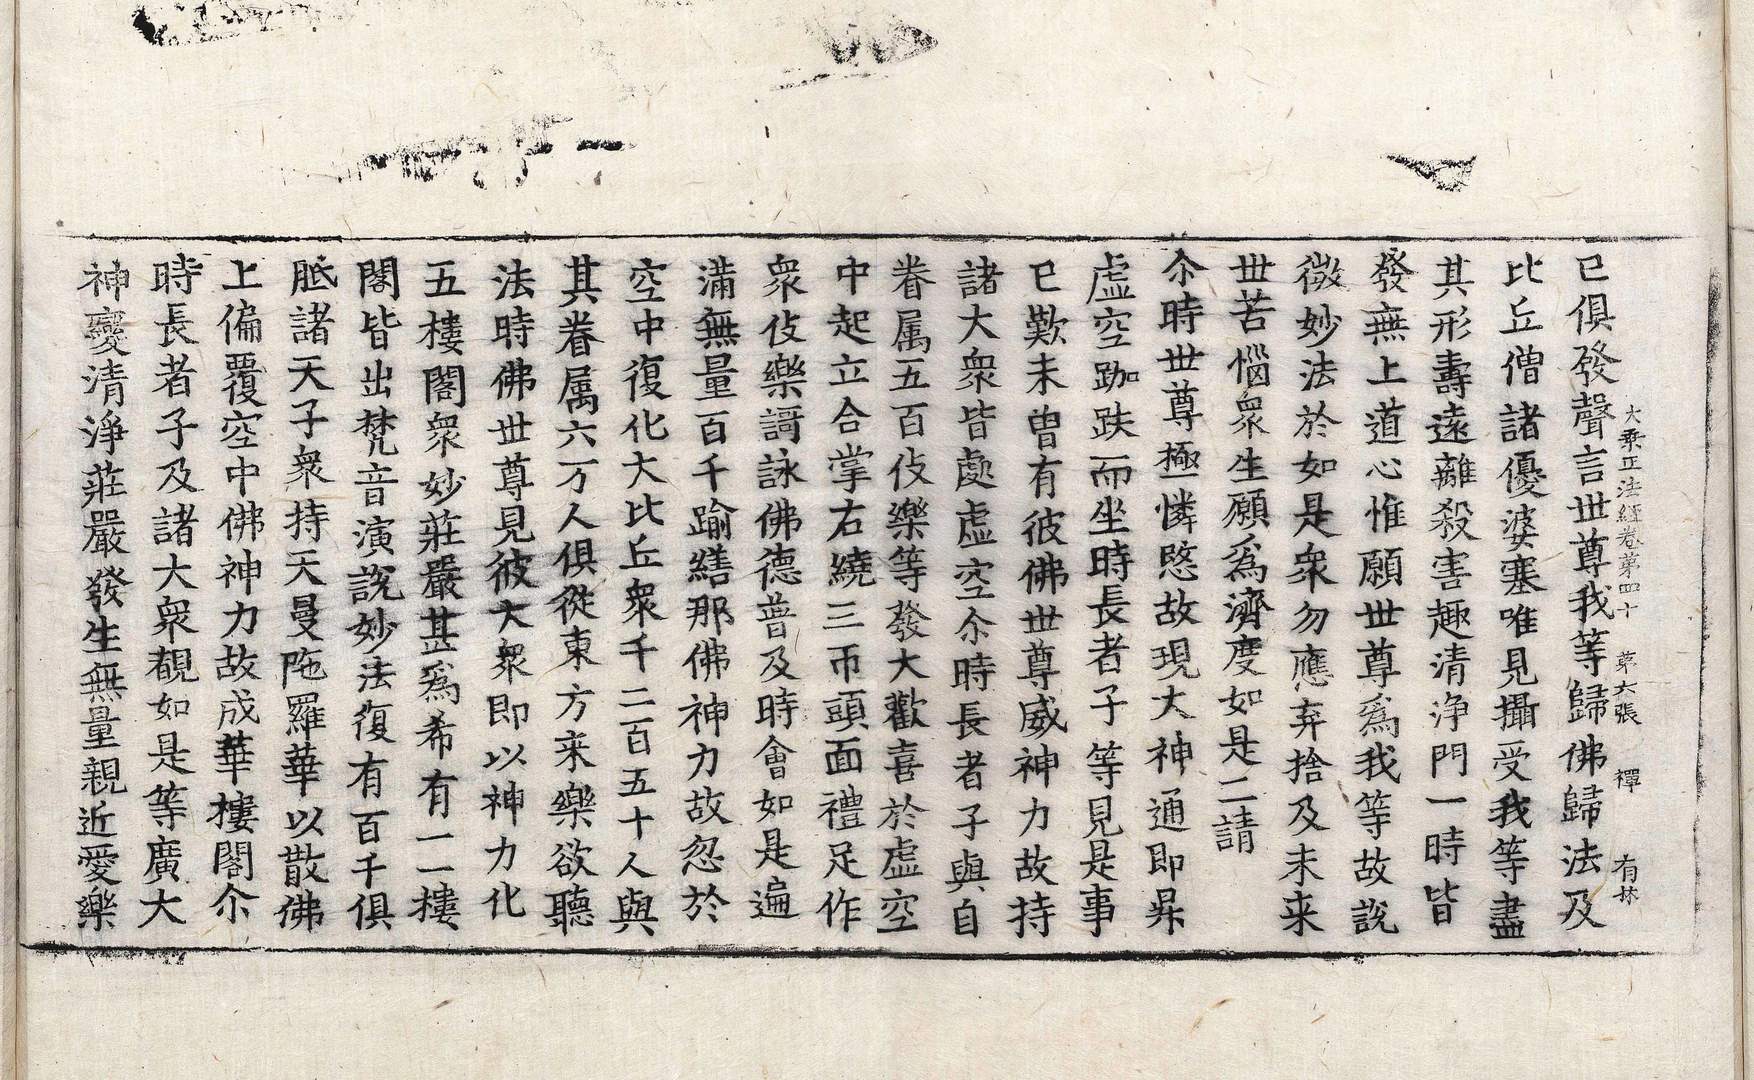 大乗正法經卷第四十　第六張　禪　有牀
已俱發聲言世尊我等歸佛歸法及
比丘僧諸優婆塞唯見攝受我等盡
其形壽遠離殺害趣清淨門一時皆
發無上道心惟願世尊爲我等故說
微妙法於如是衆勿應弃捨及未来
世苦惱衆生願爲濟度如是二請
尒時世尊極憐愍故現大神通即昇
虛空跏趺而坐時長者子等見是事
已歎未曾有彼佛世尊威神力故持
諸大衆皆處虛空尒時長者子與自
眷属五百伎樂等發大歡喜於虛空
中起立合掌右繞三帀頭面禮足作
衆伎樂謌詠佛德普及時會如是遍
滿無量百千踰繕那佛神力故忽於
空中復化大比丘衆千二百五十人與
其眷属六万人俱從東方来樂欲聽
法時佛世尊見彼大衆即以神力化
五樓閣衆妙莊嚴甚爲希有一一樓
閣皆出梵音演說妙法復有百千俱
胝諸天子衆持天曼陁羅華以散佛
上徧覆空中佛神力故成華樓閣尒
時長者子及諸大衆覩如是等廣大
神變清淨莊嚴發生無量親近愛樂